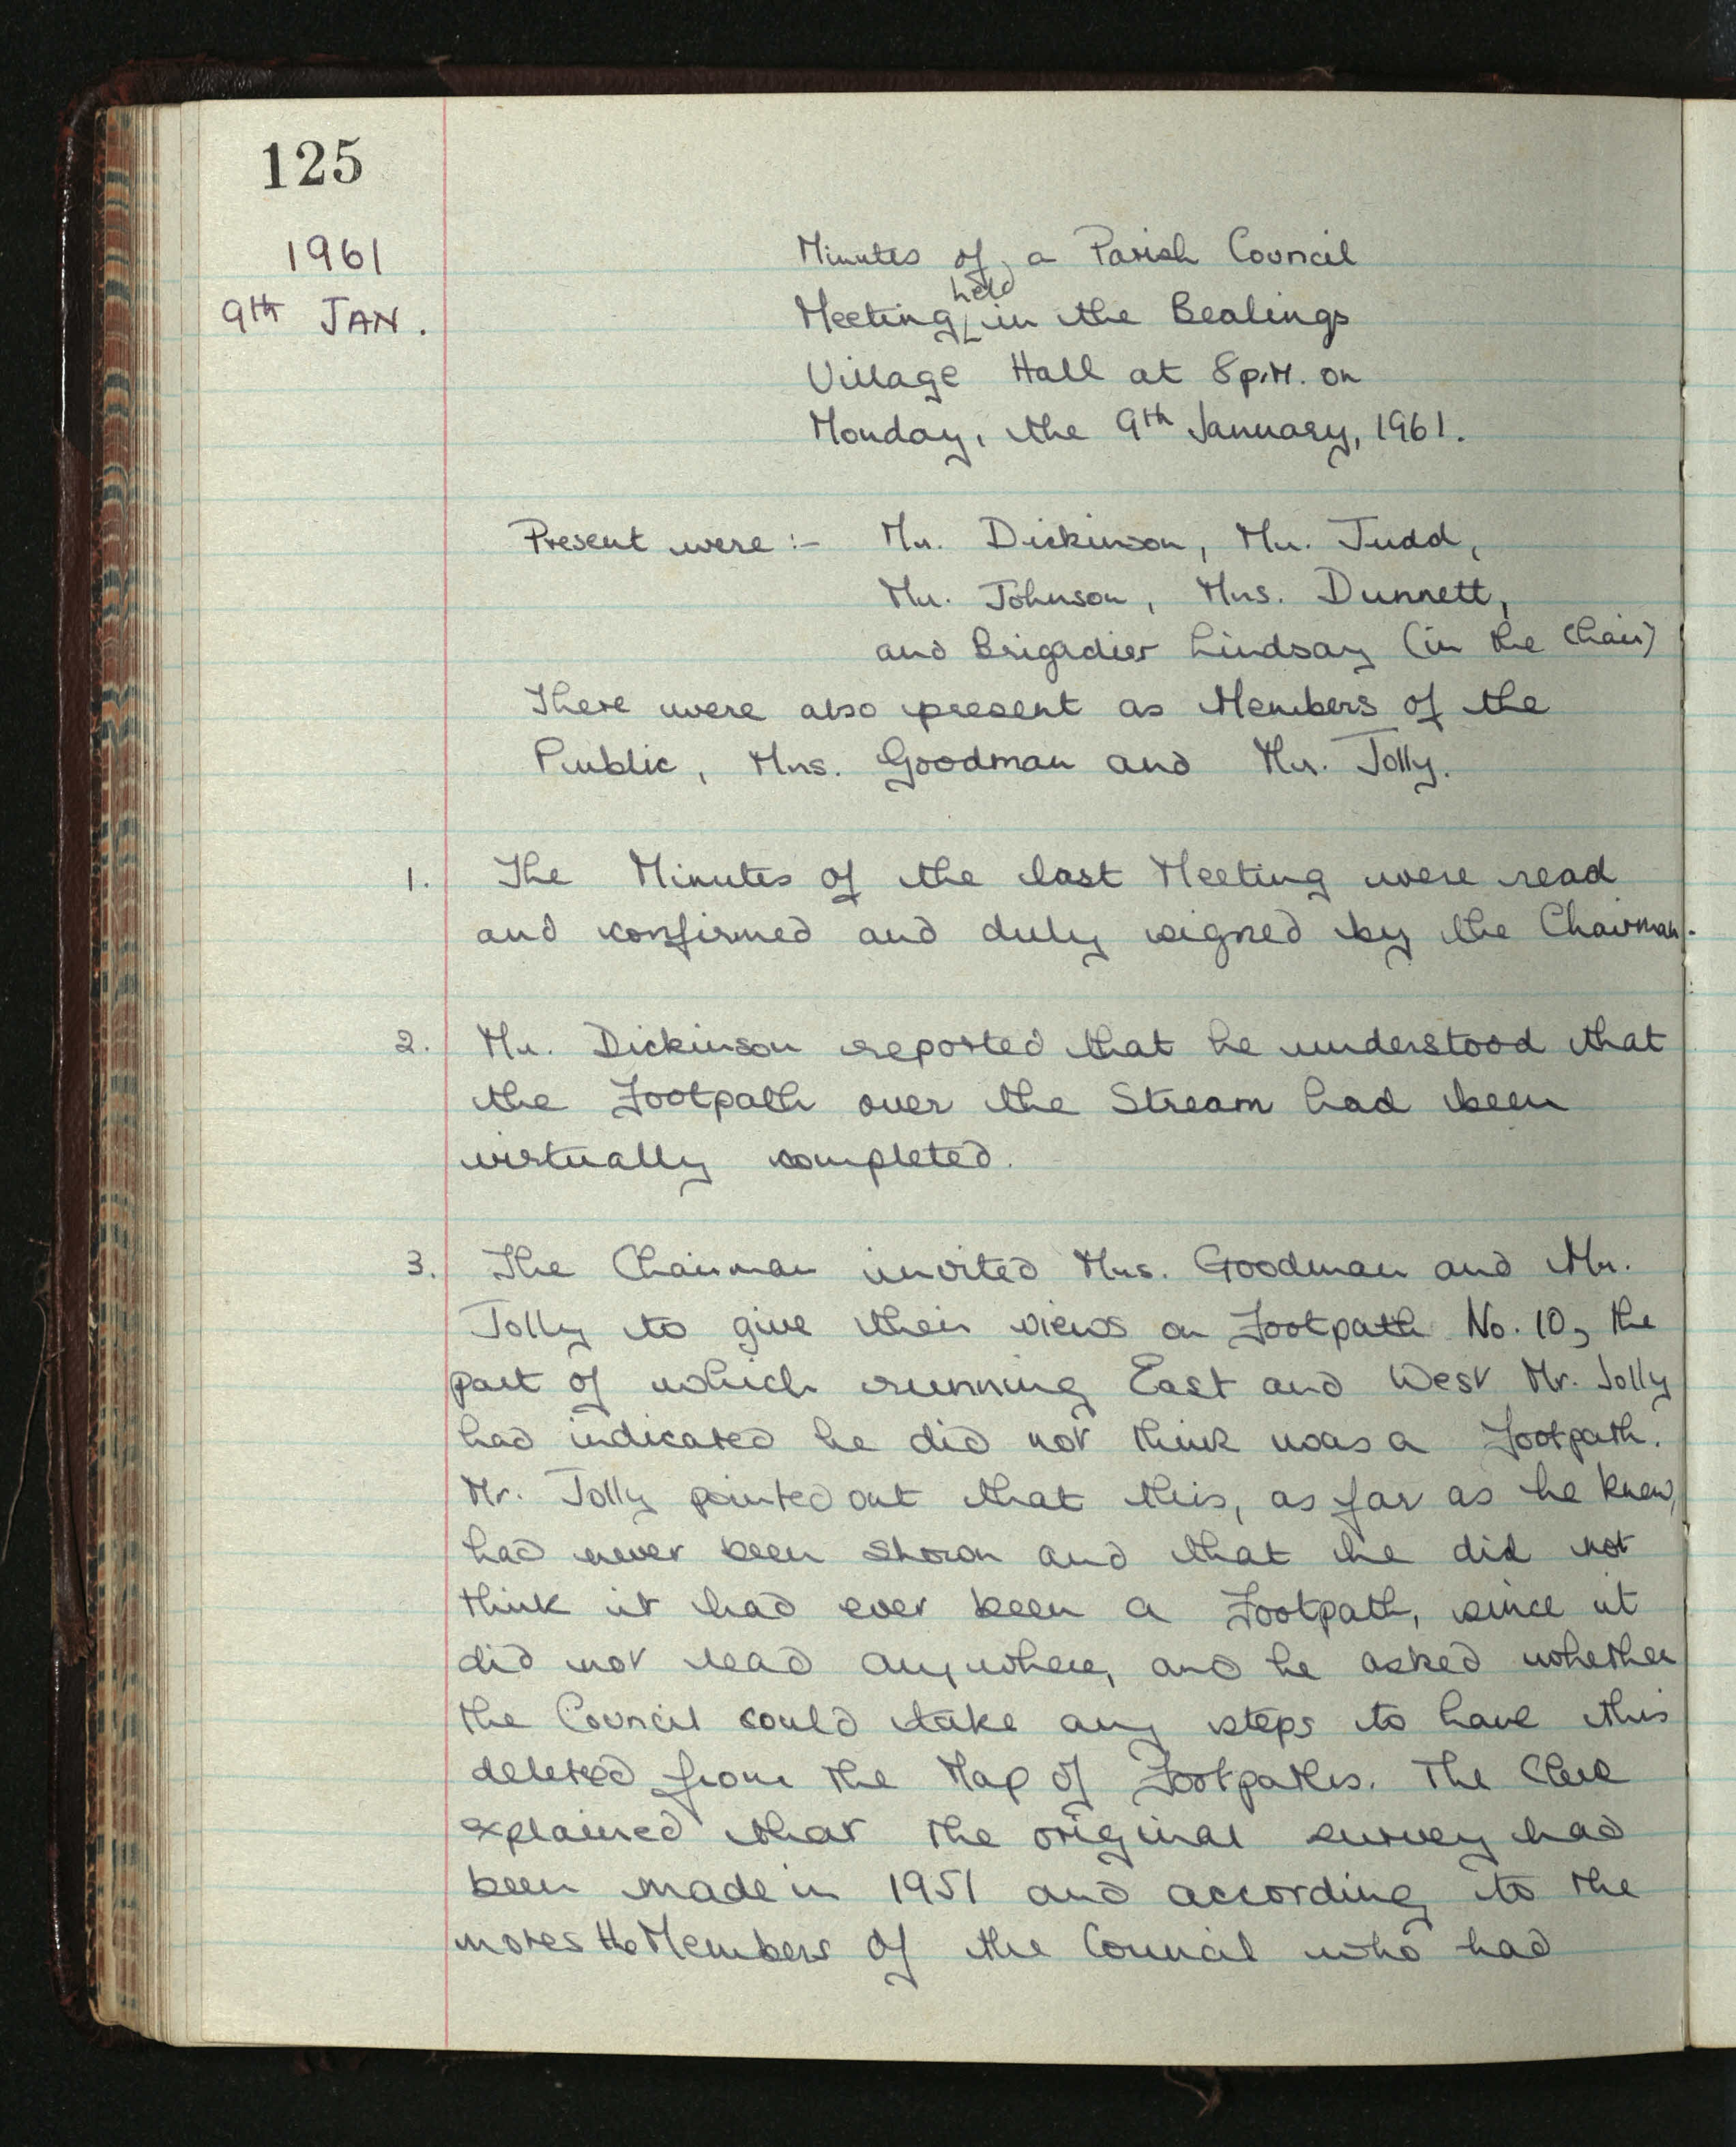 125
1961
9th JAN.
Minutes of a Parish Council
held
Meeting in the Bealings
Village Hall at 8 p.m. on
Monday, the 9th January, 1961.
Present were :- Mr. Dickinson, Mr. Judd,
Mr. Johnson, Mrs. Dunnett,
and Brigadier Lindsay (in the Chair)
There were also present as Members of the
Public, Mrs. Goodman and Mr. Jolly.
1. The Minutes of the last Meeting were read
and confirmed and duly signed by the Chairman.
2. Mr. Dickinson reported that he understood that
the Footpath over the Stream had been
virtually completed.
3. The Chairman invited Mrs. Goodman and Mr.
Jolly to give their views on Footpath No. 10, the
part of which running East and West Mr. Jolly
had indicated he did not think was a Footpath.
Mr. Jolly pointed out that this, as far as he knew,
had never been shown and that he did not
think it had ever been a Footpath, since it
did not lead anywhere, and he asked whether
the Council could take any steps to have this
deleted from the Map of Footpaths. The Clerk
explained that the original survey had
been made in 1951 and according to the
notes the Members of the Council who had